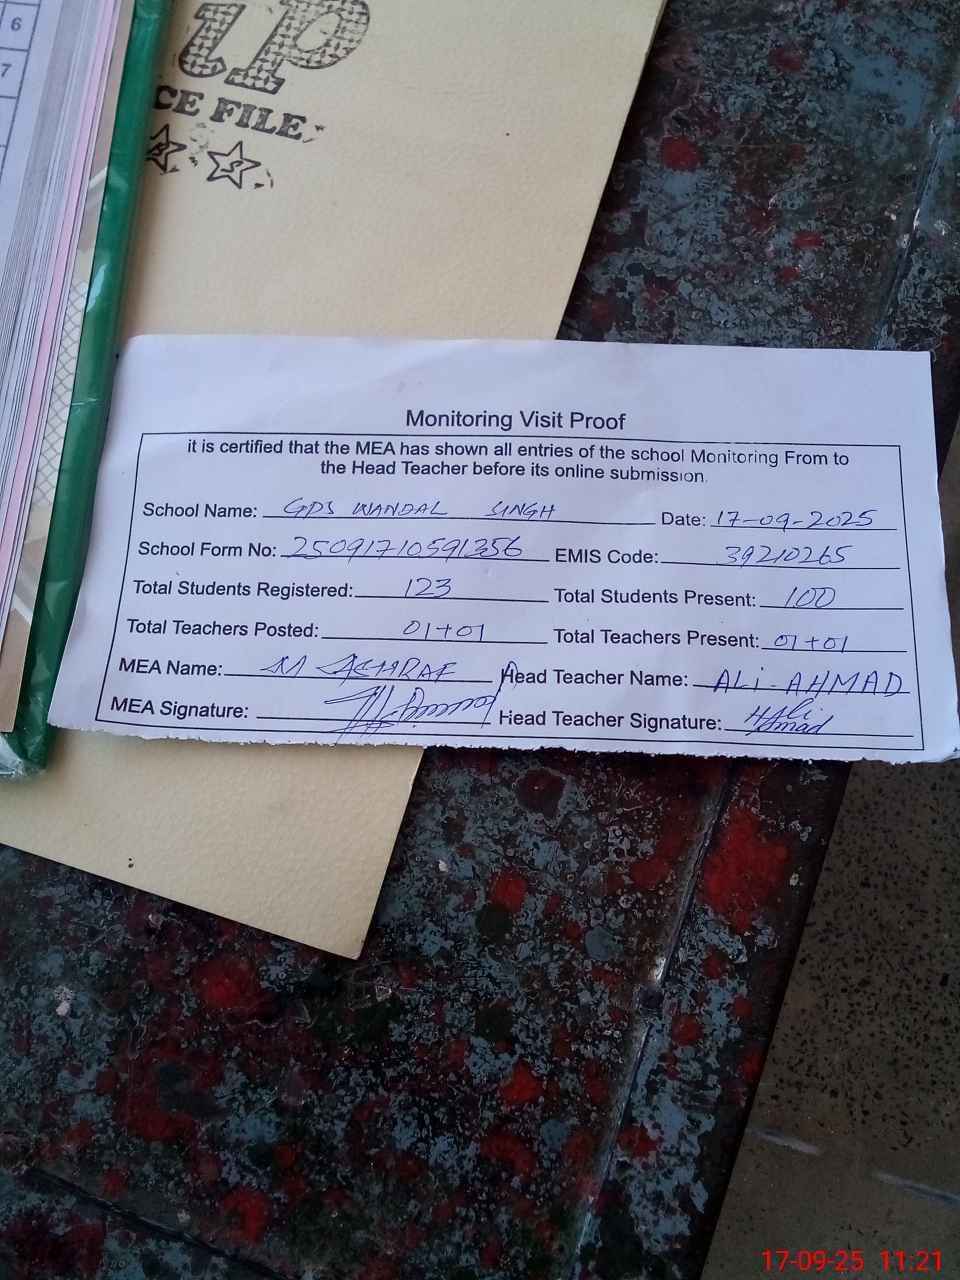 6
7
CE FILE
Monitoring Visit Proof
it is certified that the MEA has shown all entries of the school Monitoring From to
the Head Teacher before its online submission.
School Name: GPS WANDAL SINGH Date: 17-09-2025
School Form No: 25091710591356 EMIS Code: 39210265
Total Students Registered: 123 Total Students Present: 100
Total Teachers Posted: 01+01 Total Teachers Present: 01+01
MEA Name: M ASHRAF Head Teacher Name: ALi-AHMAD
MEA Signature: Head Teacher Signature: Ali
Ahmad
17-09-25 11:21